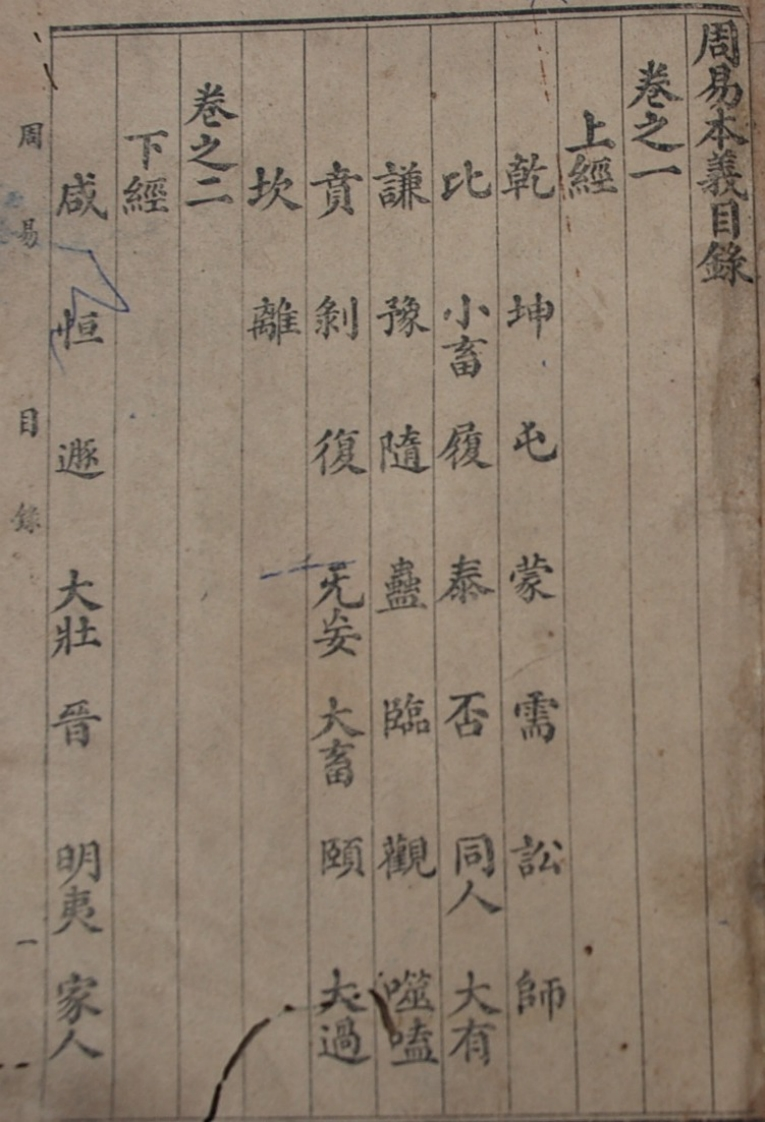 周易本義目錄
卷之一
上經
乾 坤 屯 蒙 需 訟 師
比 小畜 履 泰 否 同人 大有
謙 豫 隨 蠱 臨 觀 噬嗑
賁 剝 復 无妄 大畜 頤 大過
坎 離
卷之二
下經
咸 恒 遯 大壯 晉 明夷 家人
周易 目錄 一